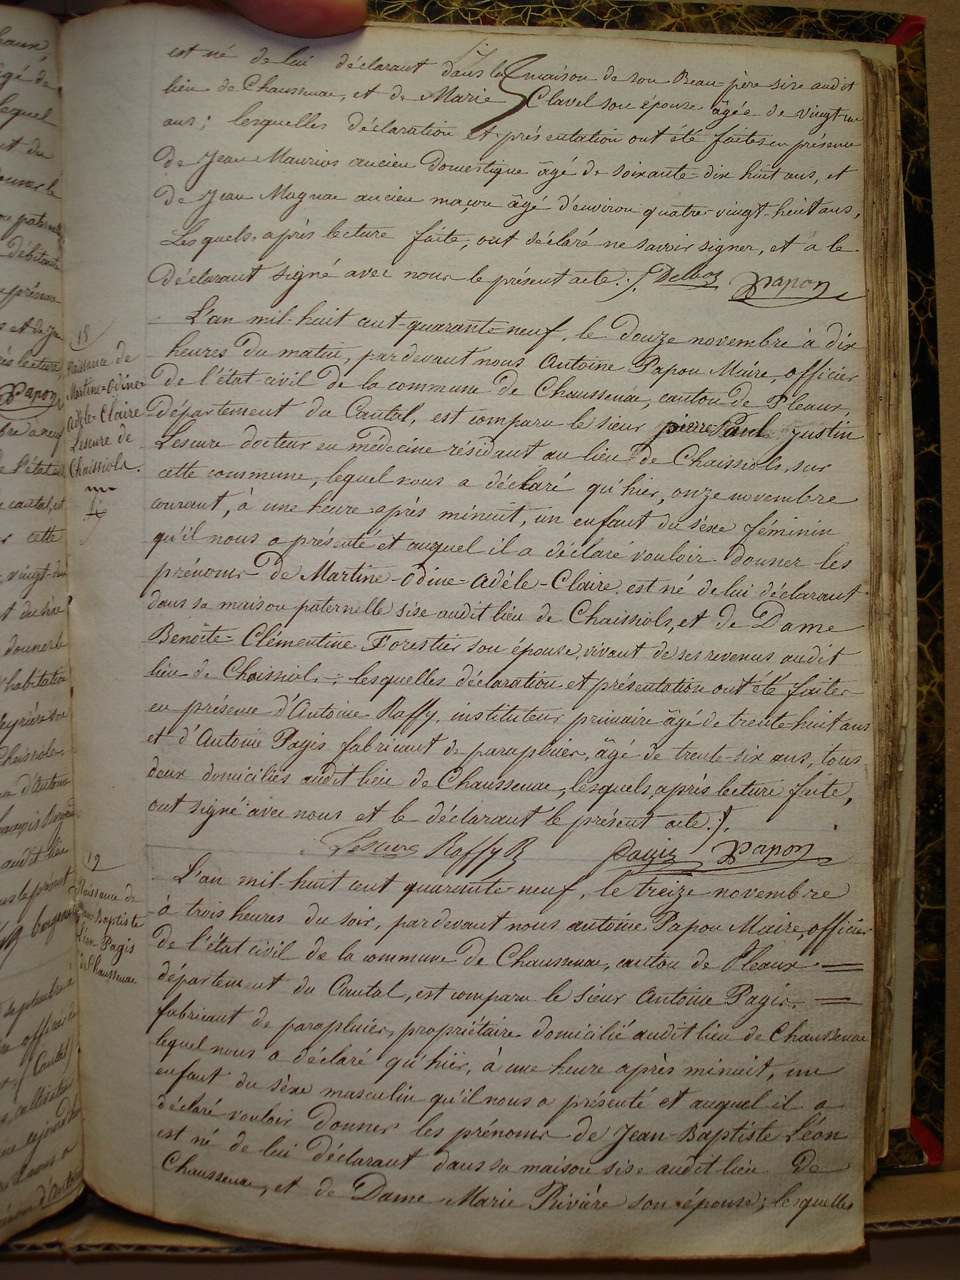 est né de lui déclarant dans la maison de son Beau-père sise audit
lieu de Chaussenac, et de Marie Clavel son épouse âgée de vingt un
ans; lesquelles déclaration et présentation ont été faites en présence
de Jean Maurios ancien domestique âgé de soixante-dix huit ans, et
de Jean Magnac ancien maçon âgé d'environ quatre-vingt-huit ans,
Lesquels, après lecture faite, ont déclaré ne savoir signer, et a le
déclarant signé avec nous le présent acte./. Delboz Papon
18
Naissance de
Martine-Odine-
Adèle-Claire
Lescure de
Chaissiols.
L'an mil-huit cent-quarante-neuf, le douze novembre à dix
heures du matin, par devant nous Antoine Papon Maire, officier
de l'état-civil de la commune de Chaussenac, canton de Pleaux,
département du Cantal, est comparu le sieur pierre Paul justin
Lescure docteur en médecine résidant au lieu de Chaissiols, sur
cette commune, lequel nous a déclaré qu'hier, onze novembre
courant, à une heure après minuit, un enfant du sèxe féminin
qu'il nous a présenté et auquel il a déclaré vouloir donner les
prénoms de Martine-Odine-Adèle-Claire, est né de lui déclarant
dans sa maison paternelle sise audit lieu de Chaissiols, et de Dame
Benoîte-Clémentine Forestier son épouse, vivant de ses revenus audit
lieu de Chaissiols; lesquelles déclaration et présentation ont été faites
en présence d'Antoine Raffy, instituteur primaire âgé de trente-huit ans
et d'Antoine Pagis fabricant de parapluies, âgé de trente-six ans, tous
deux domiciliés audit lieu de Chaussenac, lesquels, après lecture faite,
ont signé avec nous et le déclarant le présent acte./.
Lescure Raffy Pagis Papon
19
Naissance de
Jean Baptiste
Léon Pagis
de Chaussenac
L'an mil-huit cent quarante neuf, le treize novembre
à trois heures du soir, pardevant nous antoine Papon Maire, officier
de l'état civil de la commune de Chaussenac, canton de Pleaux
département du Cantal, est comparu le sieur Antoine Pagis
fabricant de parapluies, propriétaire domicilié audit lieu de Chaussenac
lequel nous a déclaré qu'hier, à une heure après minuit, un
enfant du sèxe masculin qu'il nous a présenté et auquel il a
déclaré vouloir donner les prénoms de Jean-Baptiste Léon
est né de lui déclarant dans sa maison sise audit lieu de
Chaussenac, et de Dame Marie Rivière son épouse; lesquelles